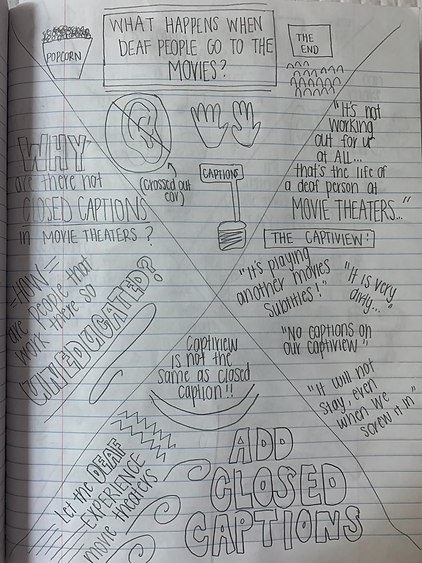 WHAT HAPPENS WHEN
DEAF PEOPLE GO TO THE
MOVIES?
POPCORN
THE
END
WHY
are there not
CLOSED CAPTIONS
in MOVIE THEATERS?
(crossed out
ear)
CAPTIONS
"It's not
working
out for us
at ALL...
that's the life of
a deaf person at
MOVIE THEATERS..."
THE CAPTIVIEW:
"It's playing
another movies
subtitles!"
"It is very
dirty..."
"No captions on
our captiview"
"It will not
stay, even
when we
screw it in"
HOW
are people that
work there so
UNEDUCATED?
Captiview
is not the
same as closed
caption!!
Let the DEAF
EXPERIENCE
movie theaters
ADD
CLOSED
CAPTIONS